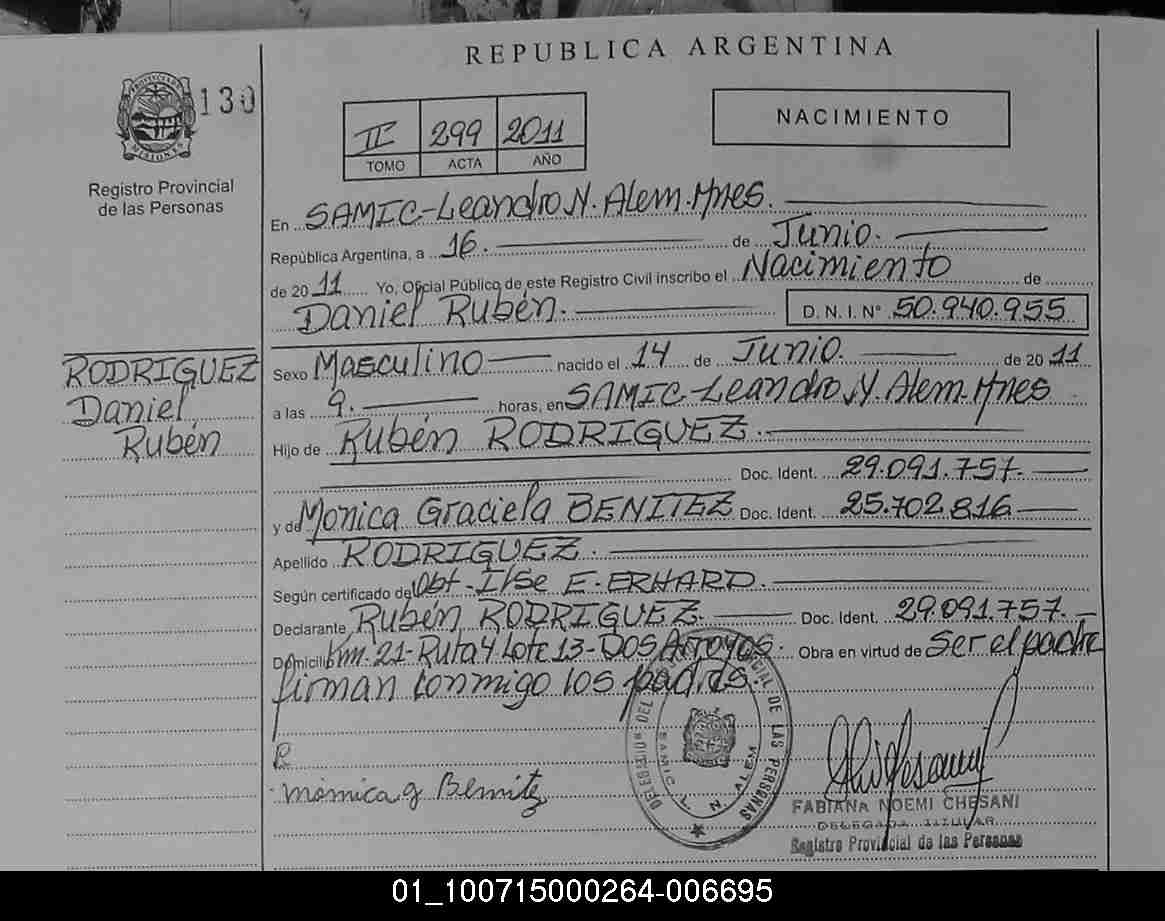 REPUBLICA ARGENTINA
PROVINCIA DE MISIONES
130
Registro Provincial
de las Personas
II 299 2011
TOMO ACTA AÑO
NACIMIENTO
En SAMIC-Leandro N. Alem-Mnes.
República Argentina, a 16. de Junio.
de 2011 Yo, Oficial Público de este Registro Civil inscribo el Nacimiento de
Daniel Rubén. D.N.I. Nº 50.940.955
RODRIGUEZ
Daniel
Rubén
Sexo Masculino nacido el 14 de Junio. de 2011
a las 9. horas, en SAMIC-Leandro N. Alem-Mnes
Hijo de Rubén RODRIGUEZ.
Doc. Ident. 29.091.757.
y de Monica Graciela BENITEZ Doc. Ident. 25.702.816
Apellido RODRIGUEZ.
Según certificado de Obt-Ilse E. ERHARD.
Declarante Rubén RODRIGUEZ. Doc. Ident. 29.091.757.
Domicilio Km. 21-Ruta 4 Lote 13-DOS Arroyos. Obra en virtud de Ser el padre
firman conmigo los padres.
R
monica g Benitez
DE LAS PERSONAS
SAMIC L N ALEM
FABIANA NOEMI CHESANI
DELEGADA TITULAR
Registro Provincial de las Personas
01_100715000264-006695